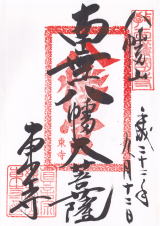 八幡山
南無八幡大菩薩
平成二十二年
月十二日
東寺
東寺